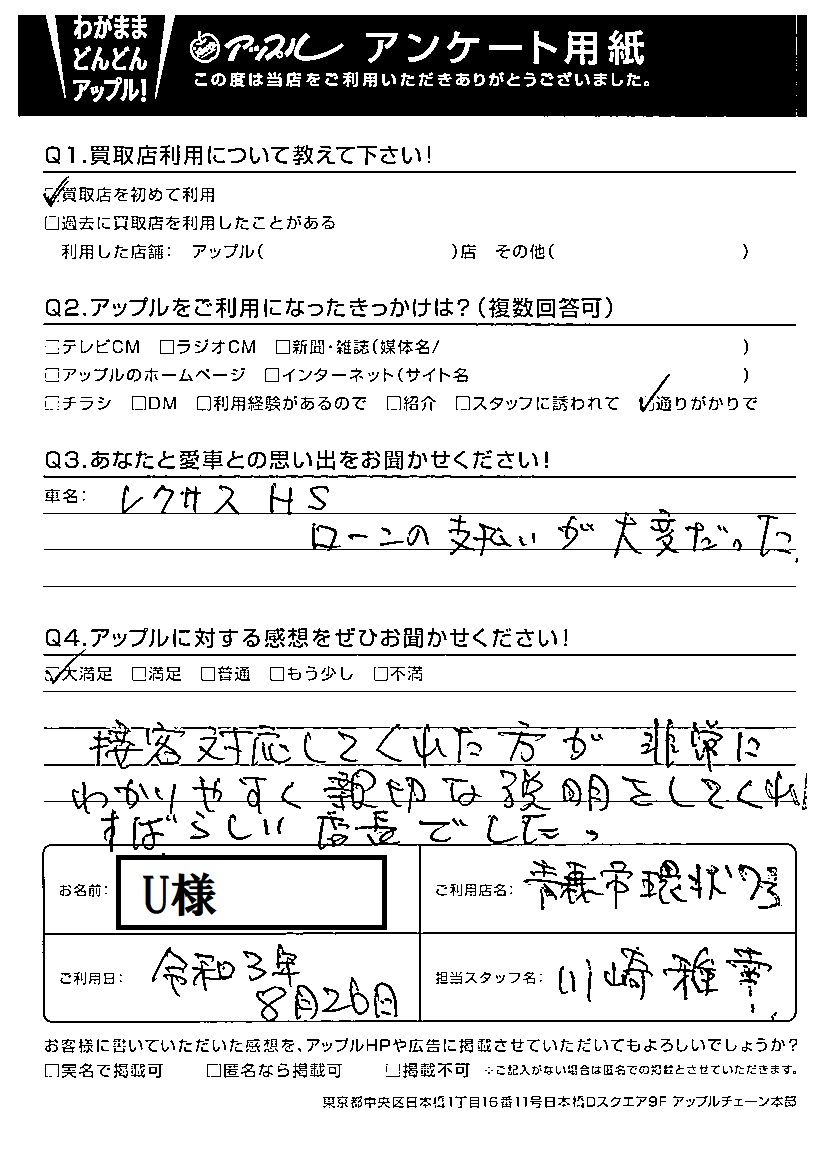 わがまま
どんどん
アップル!
アップル アンケート用紙
この度は当店をご利用いただきありがとうございました。
Q1.買取店利用について教えて下さい!
☑買取店を初めて利用
□過去に買取店を利用したことがある
利用した店舗: アップル( )店 その他( )
Q2.アップルをご利用になったきっかけは?(複数回答可)
□テレビCM □ラジオCM □新聞・雑誌(媒体名/ )
□アップルのホームページ □インターネット(サイト名 )
□チラシ □DM □利用経験があるので □紹介 □スタッフに誘われて ☑通りがかりで
Q3.あなたと愛車との思い出をお聞かせください!
車名: レクサス HS
ローンの支払いが大変だった
Q4.アップルに対する感想をぜひお聞かせください!
☑大満足 □満足 □普通 □もう少し □不満
接客対応してくれた方が非常に
わかりやすく親切な説明をしてくれ
すばらしい店長でした。
お名前: U様
ご利用店名: 青森市環状7号
ご利用日: 令和3年
8月26日
担当スタッフ名: 川崎 雅幸
お客様に書いていただいた感想を、アップルHPや広告に掲載させていただいてもよろしいでしょうか?
□実名で掲載可 □匿名なら掲載可 □掲載不可 ※ご記入がない場合は匿名での掲載とさせていただきます。
東京都中央区日本橋1丁目16番11号日本橋Dスクエア9F アップルチェーン本部